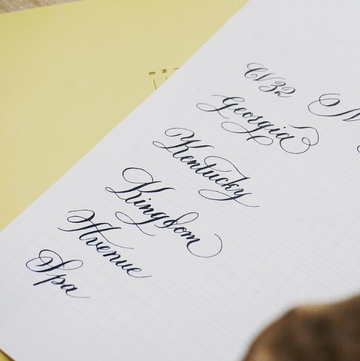 Georgia
Kentucky
Kingdom
Avenue
Spa